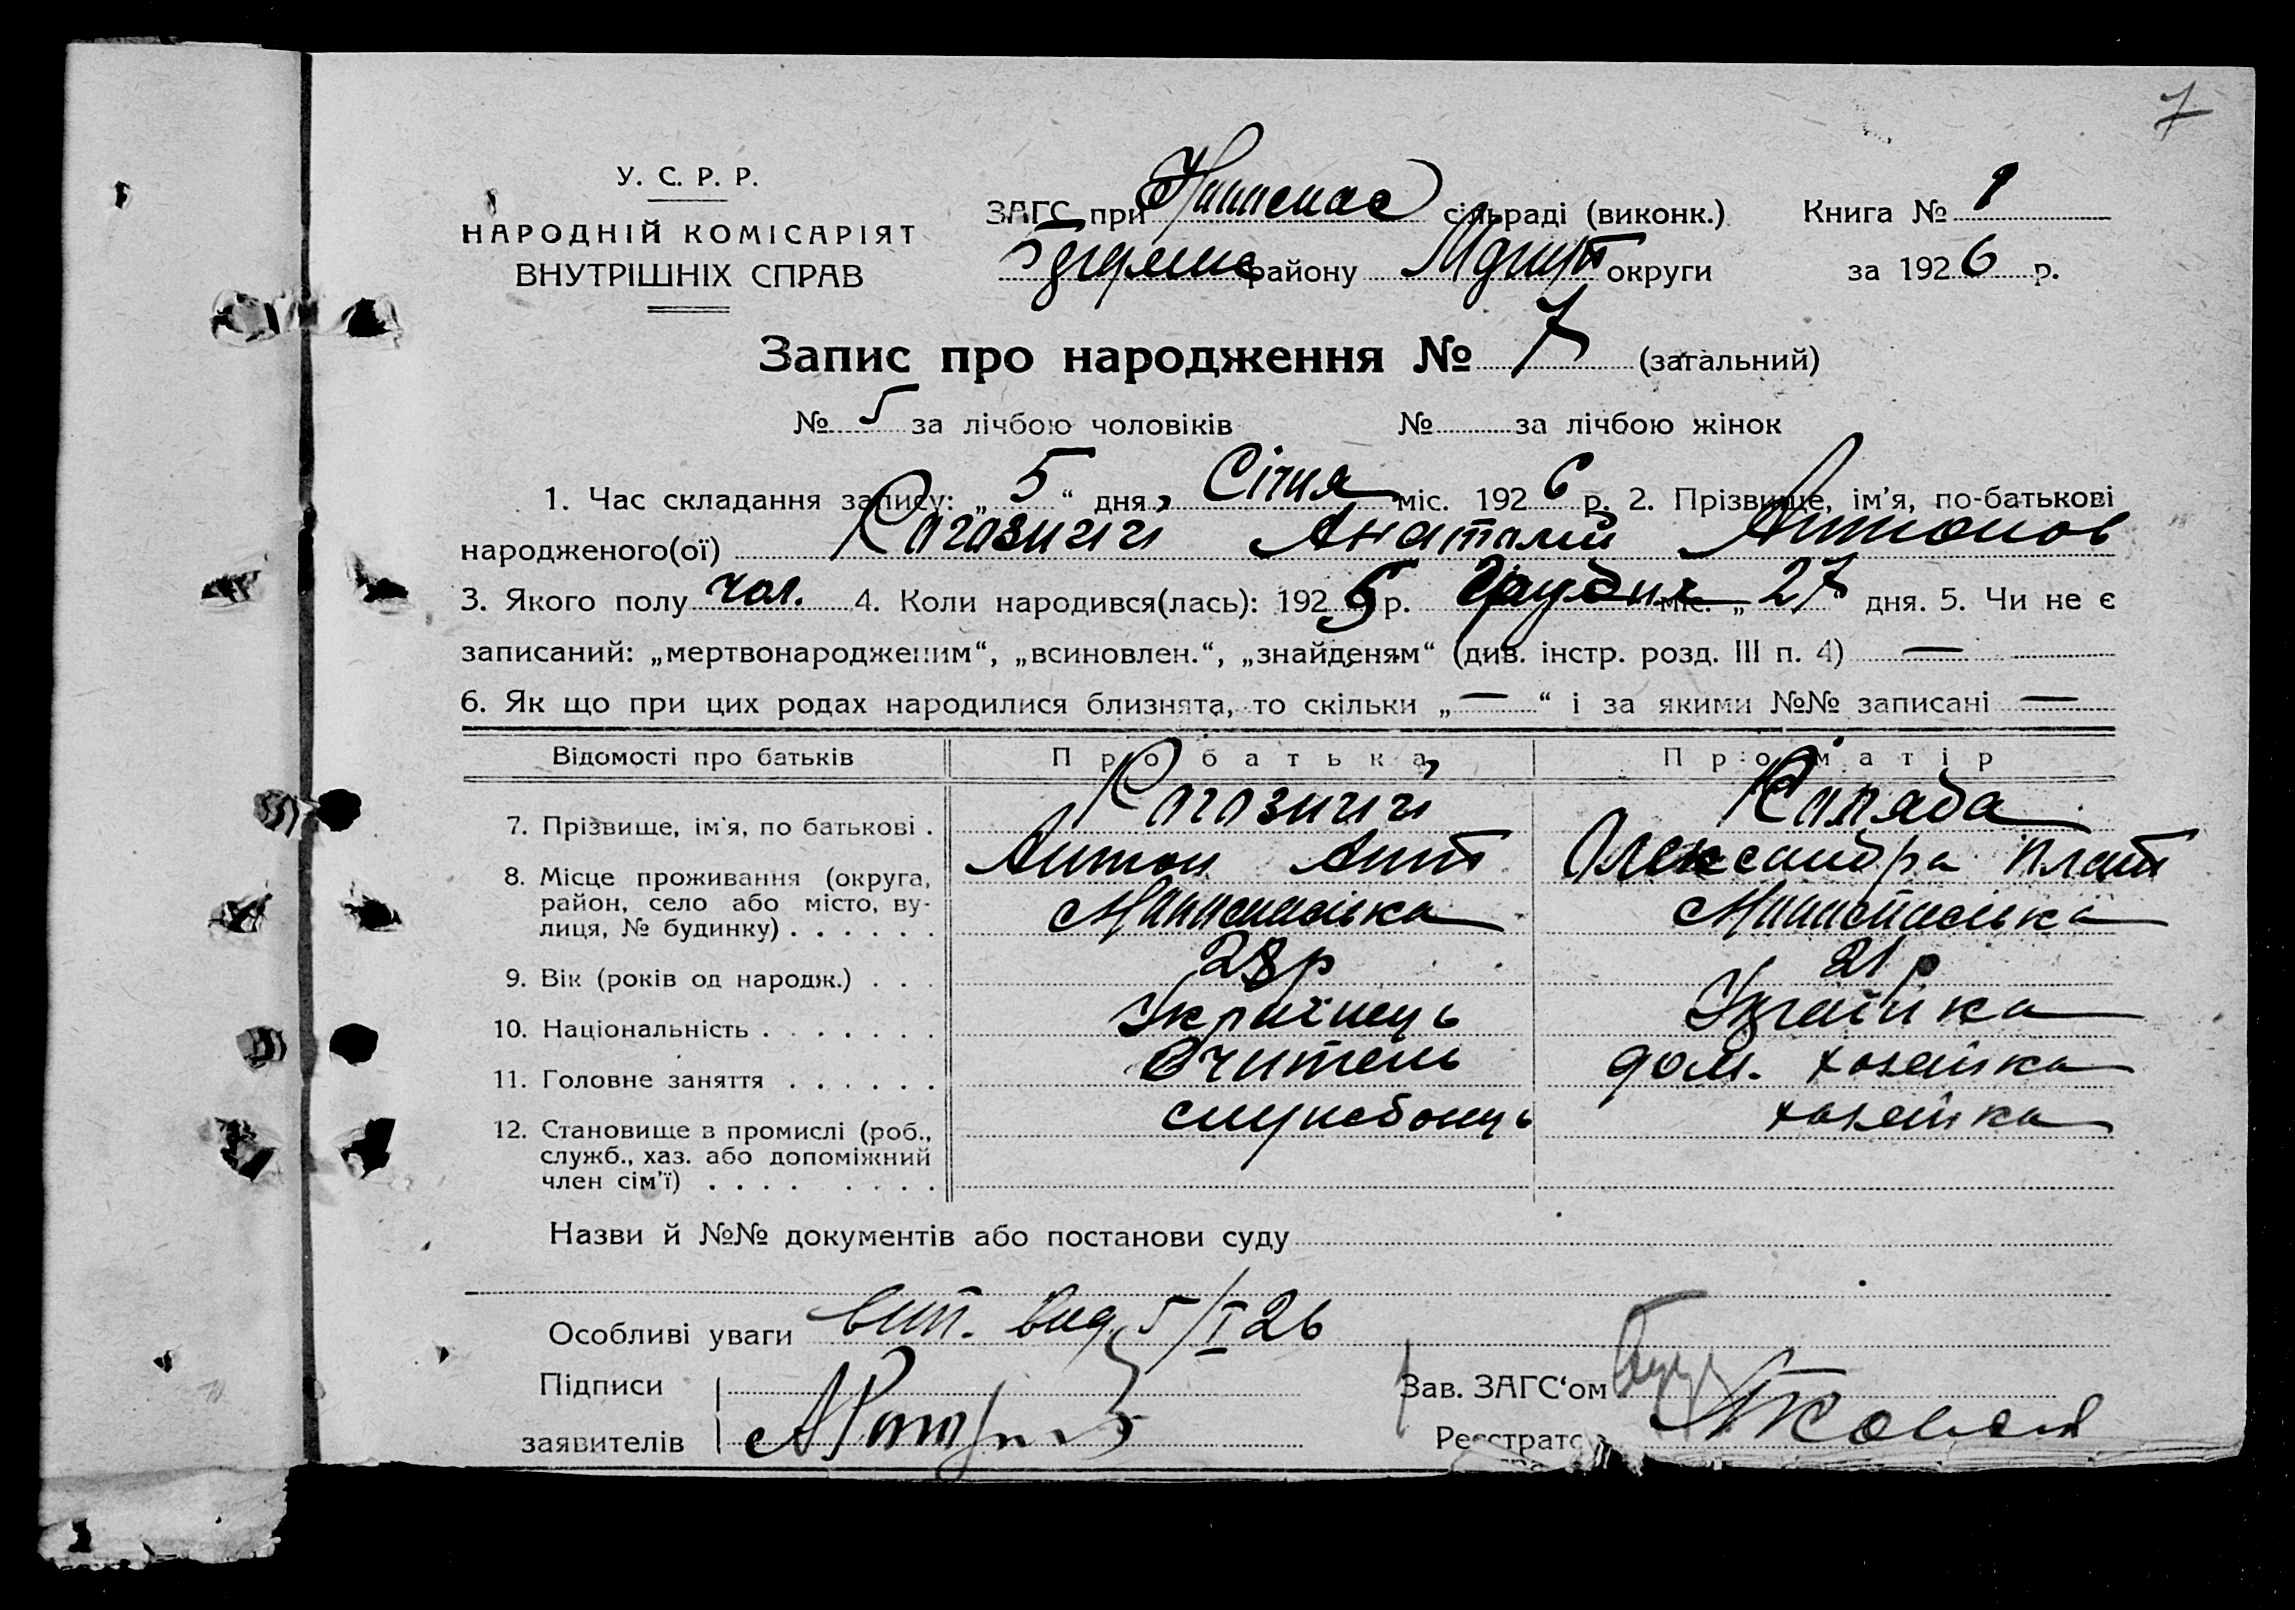 7
У. С. Р. Р.
НАРОДНІЙ КОМІСАРІЯТ
ВНУТРІШНІХ СПРАВ
ЗАГС при сільраді (виконк.) Книга № 1
району округи за 1926 р.
Запис про народження № 7 (загальний)
№ 5 за лічбою чоловіків № за лічбою жінок
1. Час складання запису: „5“ дня Січня міс. 1926 р. 2. Прізвище, ім'я, по-батькові
народженого(ої) Анатолій Антонов
3. Якого полу чол. 4. Коли народився(лась): 1925 р. Грудня міс. „27“ дня. 5. Чи не є
записаний: „мертвонародженим“, „всиновлен.“, „знайденям“ (див. інстр. розд. III п. 4) —
6. Як що при цих родах народилися близнята, то скільки „—“ і за якими №№ записані —
Відомості про батьків Про батька Про матір
7. Прізвище, ім'я, по батькові . Коляда
Антон Ант Олександра Плат
8. Місце проживання (округа,
район, село або місто, ву-
лиця, № будинку) . . . . . .
9. Вік (років од народж.) . . . 28 р 21 р
10. Національність . . . . . . . Українець Українка
11. Головне заняття . . . . . . Вчитель дом. хозяйка
12. Становище в промислі (роб.,
служб., хаз. або допоміжний
член сім'ї) . . . . . . . . службонць хозяйка
Назви й №№ документів або постанови суду
Особливі уваги вип. вид. 5/I 26
Підписи
заявителів
Зав. ЗАГС'ом
Реєстратор